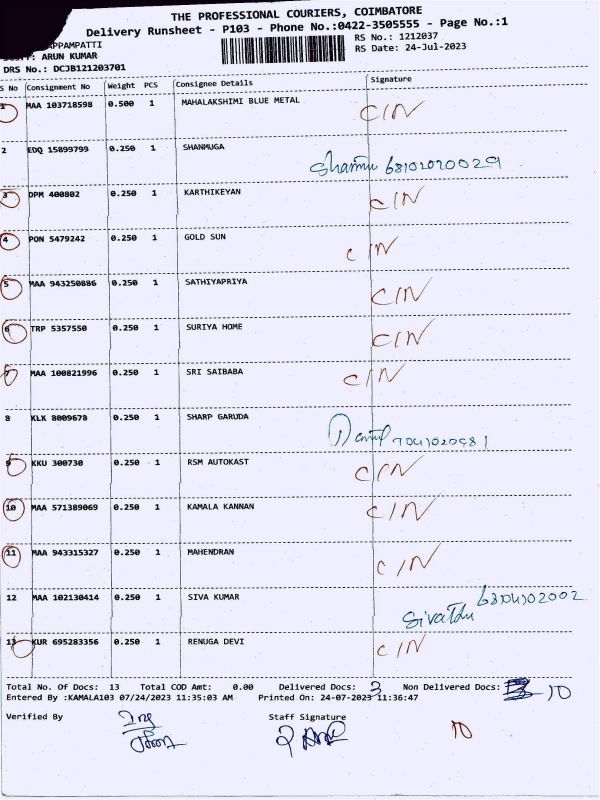 THE PROFESSIONAL COURIERS, COIMBATORE
Delivery Runsheet - P103 - Phone No.:0422-3505555 - Page No.:1
RS No.: 1212037
APPAMPATTI
RS Date: 24-Jul-2023
ARUN KUMAR
DRS No.: DCJB121203701
S No Consignment No Weight PCS Consignee Details Signature
1 MAA 103718598 0.500 1 MAHALAKSHIMI BLUE METAL C/N
2 EDQ 15899799 0.250 1 SHANMUGA
3 DPM 400802 0.250 1 KARTHIKEYAN C/N
4 PON 5479242 0.250 1 GOLD SUN C/N
5 MAA 943250886 0.250 1 SATHIYAPRIYA C/N
6 TRP 5357550 0.250 1 SURIYA HOME C/N
7 MAA 100821996 0.250 1 SRI SAIBABA C/N
8 KLK 8009678 0.250 1 SHARP GARUDA
9 KKU 300730 0.250 1 RSM AUTOKAST C/N
10 MAA 571389069 0.250 1 KAMALA KANNAN C/N
11 MAA 943315327 0.250 1 MAHENDRAN C/N
12 MAA 102130414 0.250 1 SIVA KUMAR
13 KUR 695283356 0.250 1 RENUGA DEVI C/N
Total No. Of Docs: 13 Total COD Amt: 0.00 Delivered Docs: 3 Non Delivered Docs: 10
Entered By :KAMALA103 07/24/2023 11:35:03 AM Printed On: 24-07-2023 11:36:47
Verified By Staff Signature
10